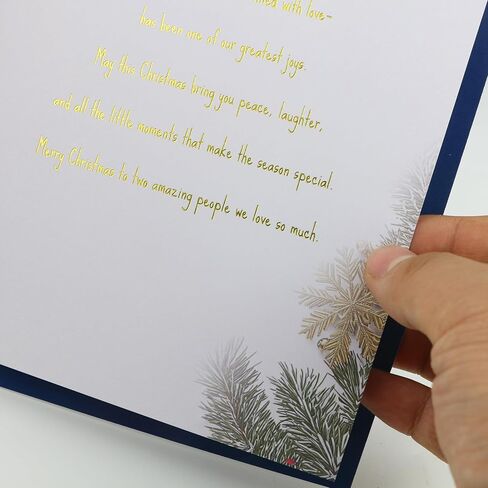 with love–
has been one of our greatest joys.
May this Christmas bring you peace, laughter,
and all the little moments that make the season special.
Merry Christmas to two amazing people we love so much.